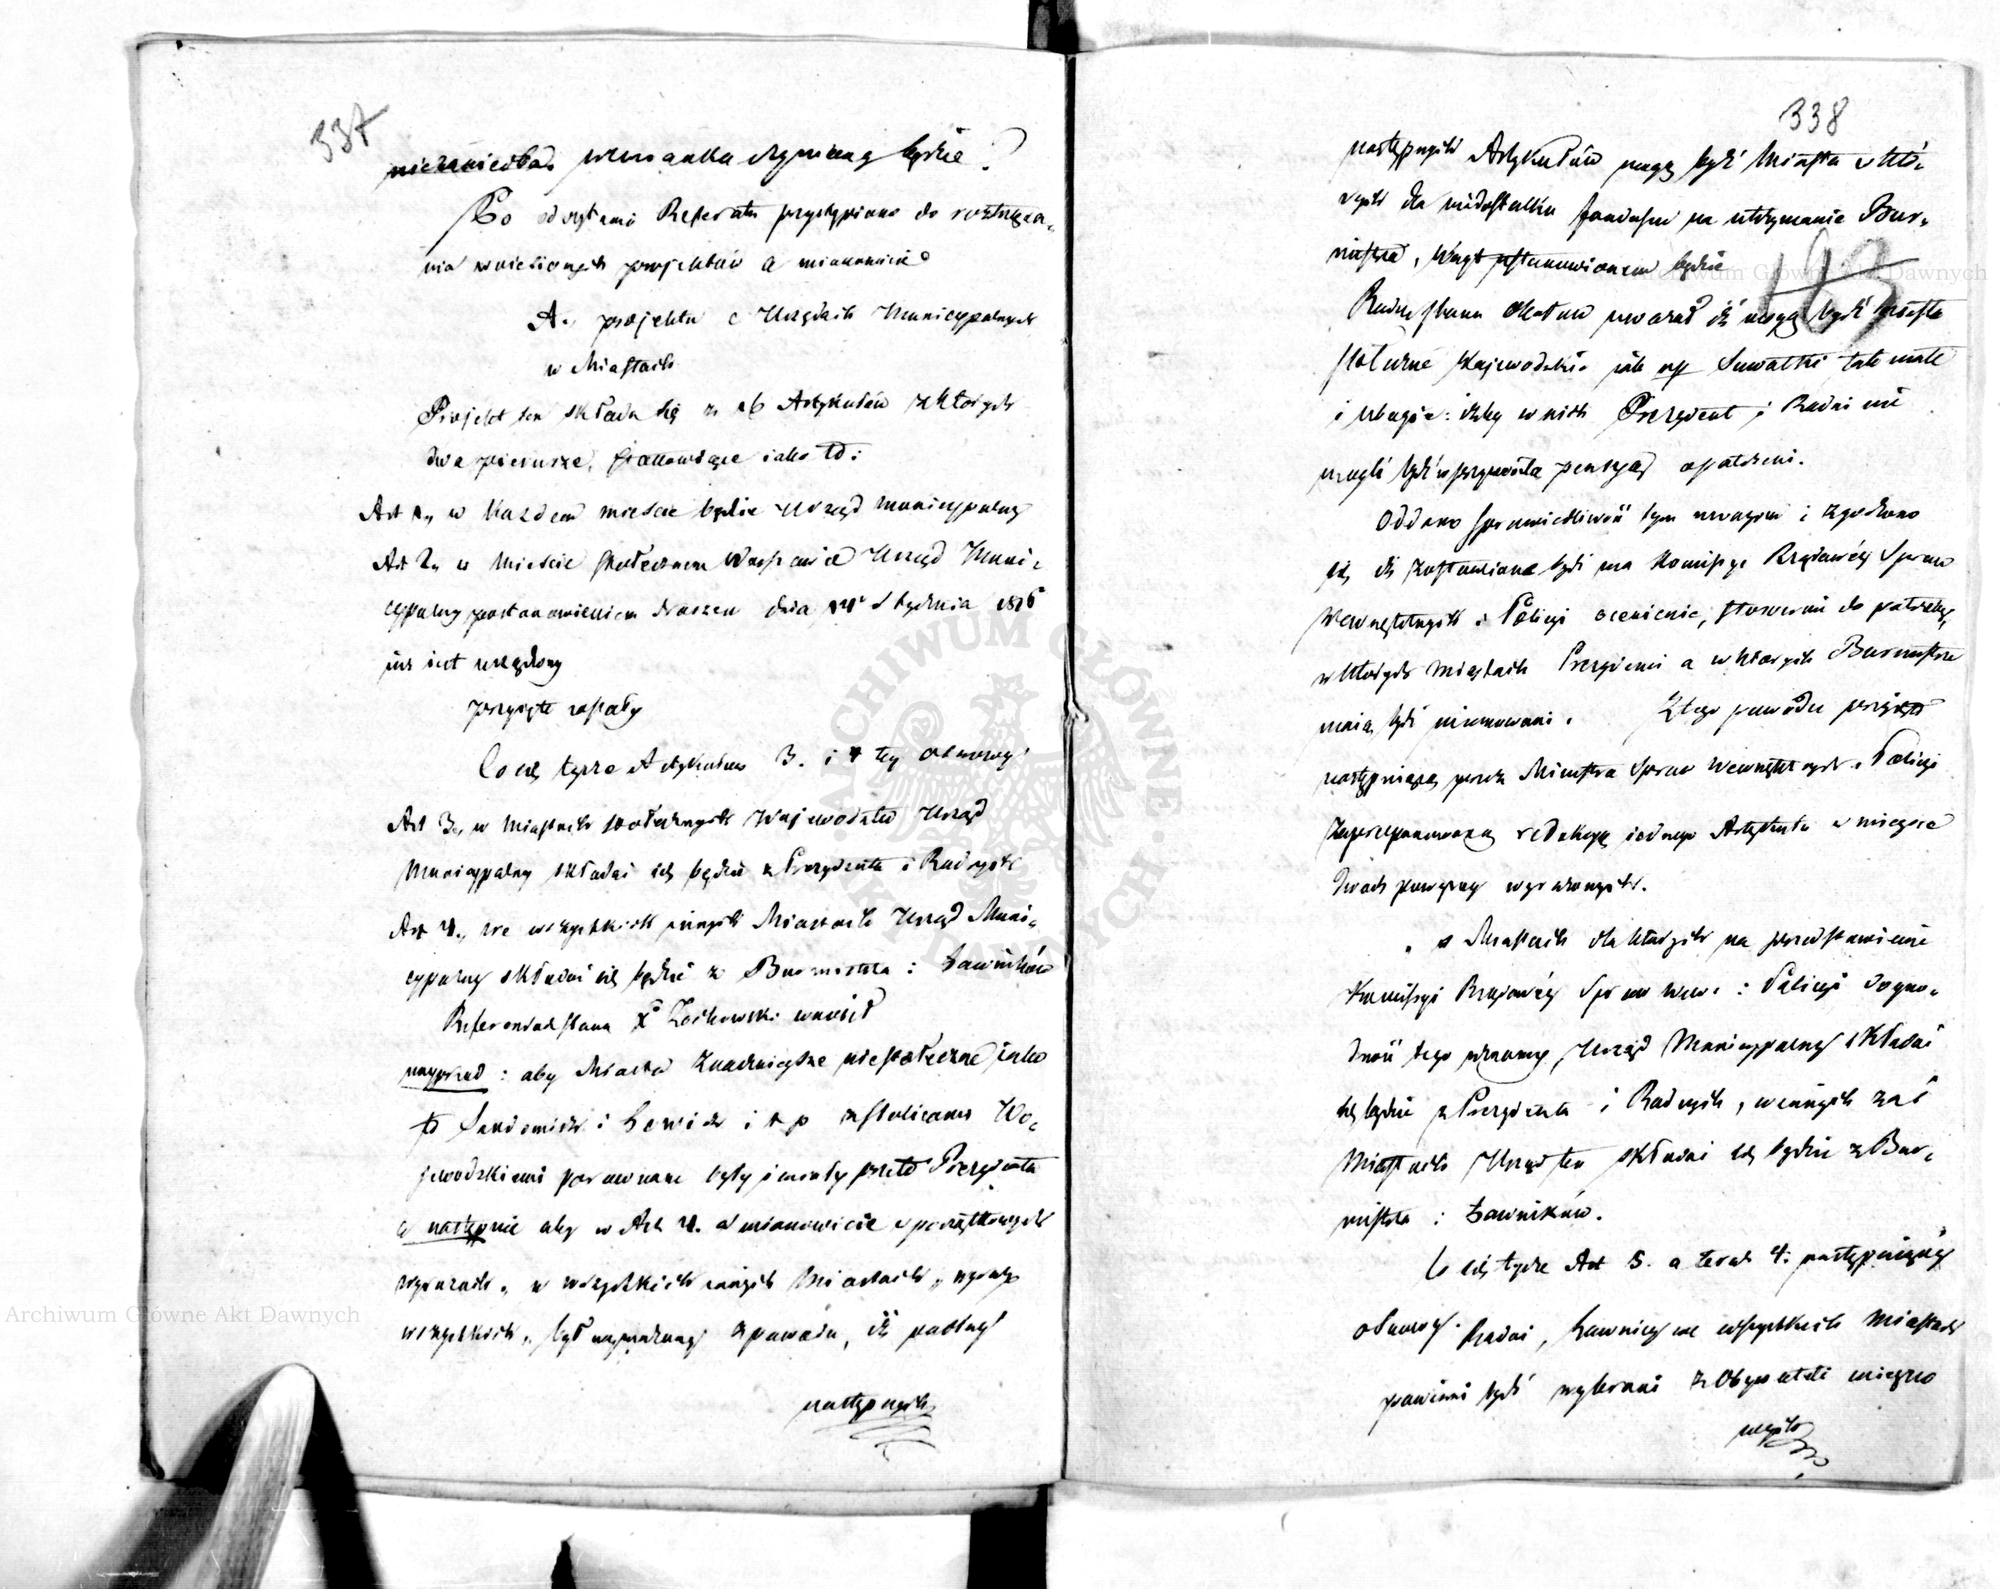 337
wzmianka uczynioną będzie.
Po odczytaniu Referatu przystąpiono do roztrząsa-
nia wniesionych projektów a mianowicie
A. projektu o Urzędach Municypalnych
w Miastach
Projekt ten składa się z 16 Artykułów z których
dwa pierwsze, stanowiące iako to:
Art 1. w każdem mieście będzie Urząd municypalny
Art 2. w Mieście stołecznem Warszawie Urząd Muni-
cypalny postanowieniem dnia Stycznia 1816
już iest urządzony
przyjęte zostały
Co się tycze Artykułów 3. i 4 tey osnowy
Art 3. w Miastach stołecznych Wojewodztw Urząd
Municypalny składać się będzie z Prezydenta i Radnych
Art 4. we wszystkich innych Miastach Urząd Muni-
cypalny składać się będzie z Burmistrza i Ławników
Referendarz Stanu X. wniosł
naypzod: aby Miasta Znacznieysze niestołeczne iako
to Sandomierz i Łowicz i t p z stolicami Wo-
jewodzkiemi porownane były i miały przeto Prezydenta
a następnie aby w Art 4. a mianowicie
wyrazach „w wszystkich innych Miastach„ wyraz
wszystkich„ był wymazany z powodu, iż podług
następnych
338
następnych Artykułów mogą być Miasta w któ-
rych dla niedostatku funduszu na utrzymanie Bur-
mistrza, Wóyt ustanowionem będzie
143
Radca Stanu uważał iż mogą być miasta
stołeczne Wojewodzkie jak np Suwałki tak małe
i ubogie: iżby w nich Prezydent i Radni nie
mogli być przyzwoitą pensyą opatrzeni.
Oddano sprawiedliwość tym uwagom i zgodzono
się iż zostawione być ma Komissyi Rządowéy Spraw
Wewnętrznych i Policyi ocenienie, stosownie do potrzeby,
w których miastach Prezydenci a w których Burmistrze
maią być mianowani. Z tego powodu przyięto
następuiącą przez Ministra Spraw Wewnętrznych i Policyi
zaproponowaną redakcyę iednego Artykułu w mieysce
dwóch powyżey wyrażonych.
„w Miastach dla których na przedstawienie
Kommissyi Rządowéy Spraw Wew: i Policyi dogo-
dność tego uznamy, Urząd Municypalny składać
się będzie z Prezydenta i Radnych, w innych zaś
Miastach Urząd ten składać się będzie z Bur-
mistrza i Ławników.
Co się tycze Art 5. a teraz 4. następuiącey
osnowy. Radni, Ławnicy we wszystkich Miastach
powinni być wybrani z Obywateli mieysco
wych
Archiwum Główne Akt Dawnych
Archiwum Główne Akt Dawnych
ARCHIWUM GŁÓWNE AKT DAWNYCH